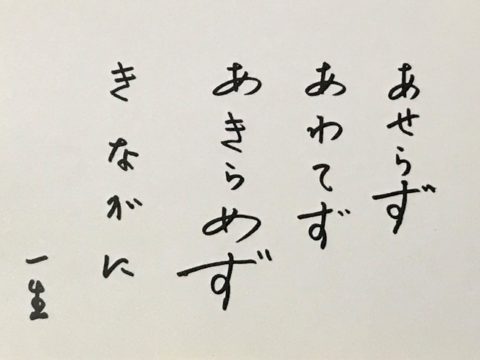 あせらず
あわてず
あきらめず
きながに
一生